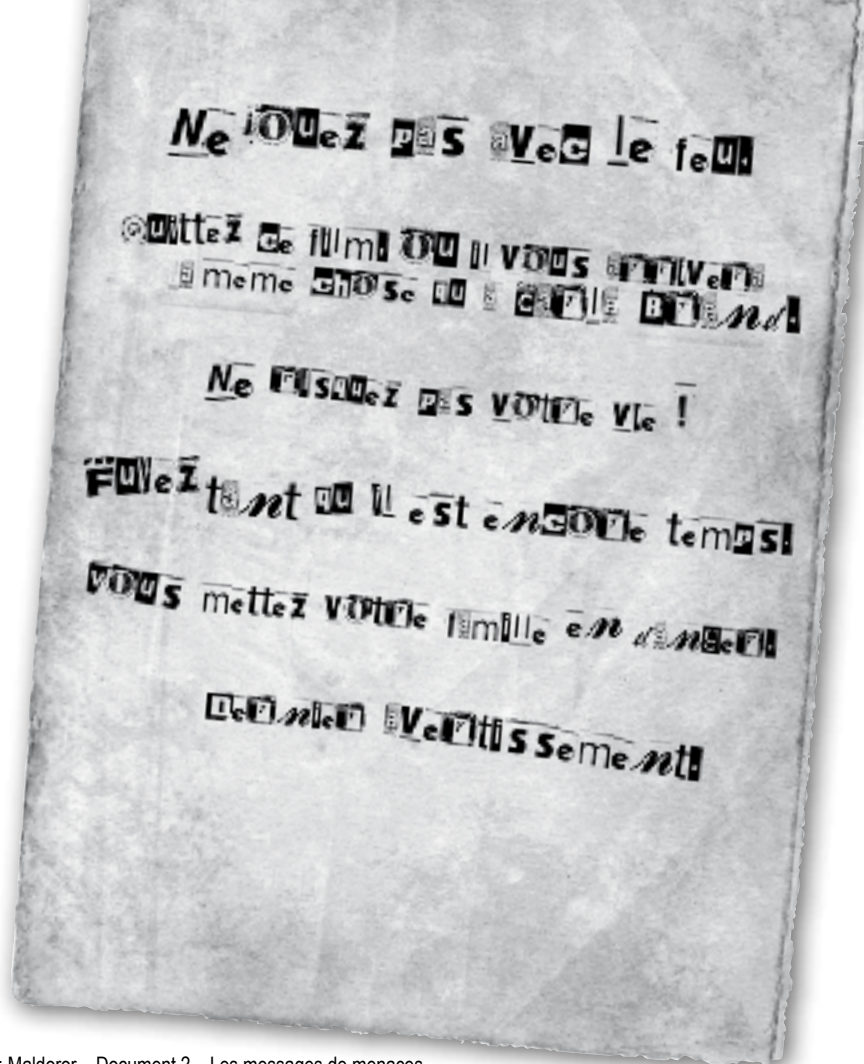 Ne jouez pas avec le feu.
Quittez ce film. Ou il vous arrivera
la meme chose qu a Carla Brand.
Ne risquez pas votre vie !
Fuyez tant qu il est encore temps.
vous mettez votre famille en danger.
Dernier avertissement.
Malderer – Document 2 – Les messages de menaces